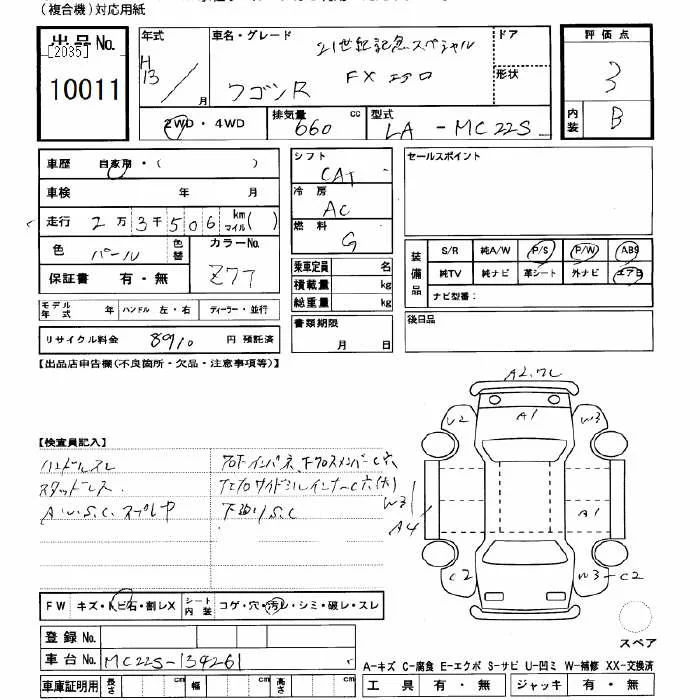 (複合機)対応用紙
出品No.
[2035]
10011
年式
H
13
月
車名・グレード
21世紀記念スペシャル
FX エアロ
ワゴンR
ドア
形状
評価点
3
内装
B
2WD・4WD
排気量
660
cc
型式
LA - MC22S
車歴 自家用・( )
車検 年 月
走行 2万3千506 km マイル( )
色 パール
色替
カラーNo.
Z77
保証書 有・無
シフト
CAT
冷房
AC
燃料
G
乗車定員 名
積載量 kg
総重量 kg
セールスポイント
装備品
S/R 純A/W P/S P/W ABS
純TV 純ナビ 革シート 外ナビ エアB
ナビ型番:
モデル年式 年 ハンドル 左・右 ディーラー・並行
書類期限
月 日
後日品
リサイクル料金 8910 円 預託済
【出品店申告欄(不良箇所・欠品・注意事項等)】
A2.ワレ
A1
U2
W3
【検査員記入】
ハンドルスレ
スタッドレス
A.W.S.C. スプレ中
フロアサイドシルインナーC穴(大)
下廻りS.C
W3
A4
A1
C2
W3-C2
FW キズ・トビ石・割レX
シート内装 コゲ・穴・汚レ・シミ・破レ・スレ
スペア
登録No.
車台No. MC22S-134261
A-キズ C-腐食 E-エクボ S-サビ U-凹ミ W-補修 XX-交換済
車庫証明用 長さ cm 幅 cm 高さ cm
工具 有・無 ジャッキ 有・無